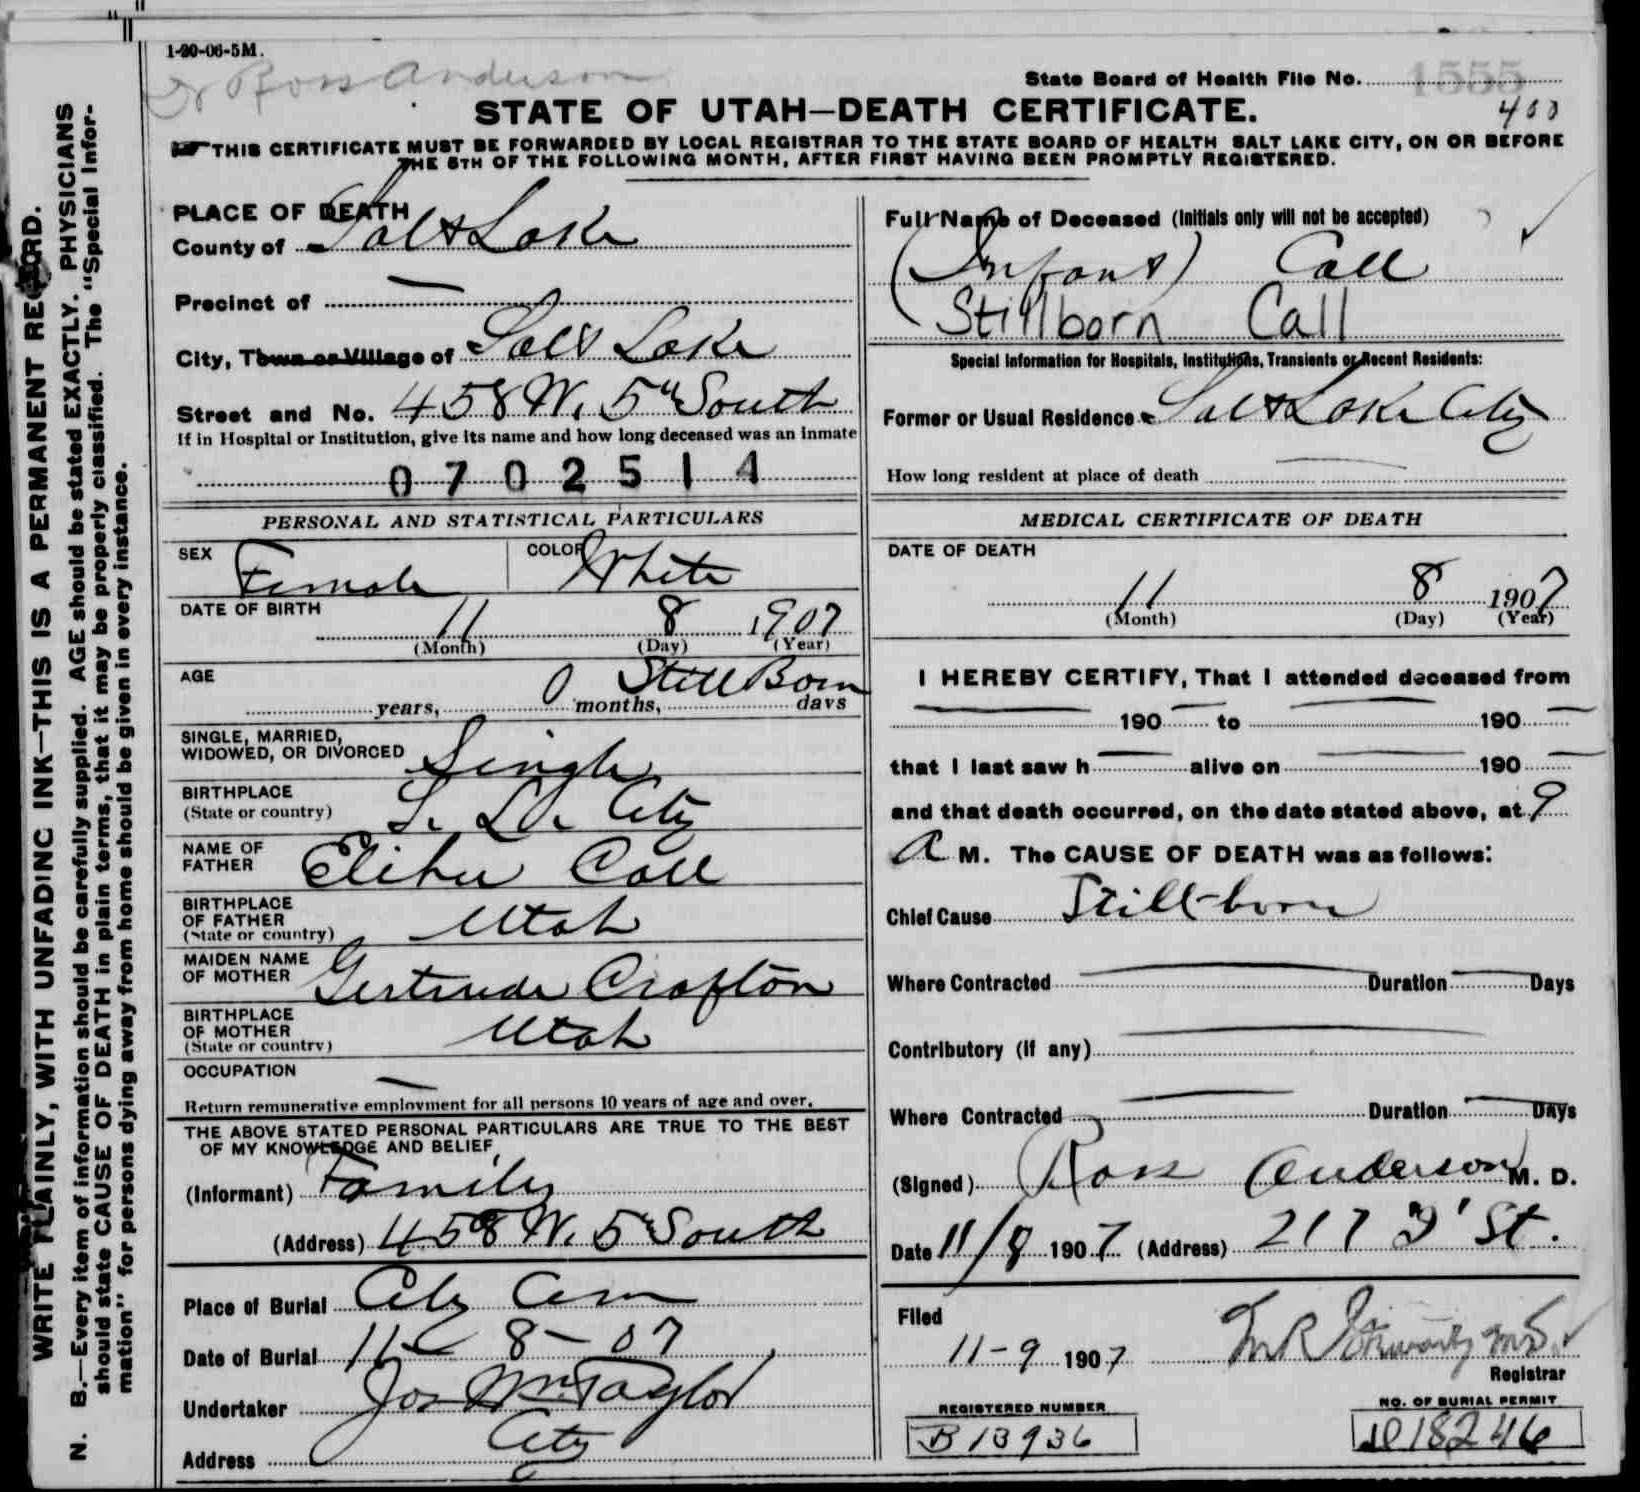 1-20-06-5M.
Dr Ross Anderson
State Board of Health File No. 1555
STATE OF UTAH—DEATH CERTIFICATE. 400
THIS CERTIFICATE MUST BE FORWARDED BY LOCAL REGISTRAR TO THE STATE BOARD OF HEALTH SALT LAKE CITY, ON OR BEFORE
THE 5TH OF THE FOLLOWING MONTH, AFTER FIRST HAVING BEEN PROMPTLY REGISTERED.
WRITE PLAINLY, WITH UNFADING INK—THIS IS A PERMANENT RECORD.
N. B.—Every item of information should be carefully supplied. AGE should be stated EXACTLY. PHYSICIANS
should state CAUSE OF DEATH in plain terms, that it may be properly classified. The "Special Infor-
mation" for persons dying away from home should be given in every instance.
PLACE OF DEATH
County of Salt Lake
Precinct of —
City, Town or Village of Salt Lake
Street and No. 458 W. 5th South
If in Hospital or Institution, give its name and how long deceased was an inmate
0702514
PERSONAL AND STATISTICAL PARTICULARS
SEX Female COLOR White
DATE OF BIRTH 11 8 1907
(Month) (Day) (Year)
AGE Still Born
years, 0 months, days
SINGLE, MARRIED,
WIDOWED, OR DIVORCED Single
BIRTHPLACE
(State or country) S. L. City
NAME OF
FATHER Elihu Call
BIRTHPLACE
OF FATHER
(State or country) Utah
MAIDEN NAME
OF MOTHER Gertrude Crafton
BIRTHPLACE
OF MOTHER
(State or country) Utah
OCCUPATION —
Return remunerative employment for all persons 10 years of age and over.
THE ABOVE STATED PERSONAL PARTICULARS ARE TRUE TO THE BEST
OF MY KNOWLEDGE AND BELIEF
(Informant) Family
(Address) 458 W. 5th South
Place of Burial City Cem
Date of Burial 11 - 8 - 07
Undertaker Jos Wm Taylor
Address City
Full Name of Deceased (Initials only will not be accepted)
(Infant) Call
Stillborn Call
Special Information for Hospitals, Institutions, Transients or Recent Residents:
Former or Usual Residence Salt Lake City
How long resident at place of death —
MEDICAL CERTIFICATE OF DEATH
DATE OF DEATH
11 8 1907
(Month) (Day) (Year)
I HEREBY CERTIFY, That I attended deceased from
— 190 — to — 190 —
that I last saw h — alive on — 190 —
and that death occurred, on the date stated above, at 9
A M. The CAUSE OF DEATH was as follows:
Chief Cause Still-born
Where Contracted — Duration — Days
Contributory (if any) —
Where Contracted — Duration — Days
(Signed) Ross Anderson M. D.
Date 11/8 1907 (Address) 217 "D" St.
Filed
11-9 1907
Registrar
REGISTERED NUMBER
B 13936
NO. OF BURIAL PERMIT
18246